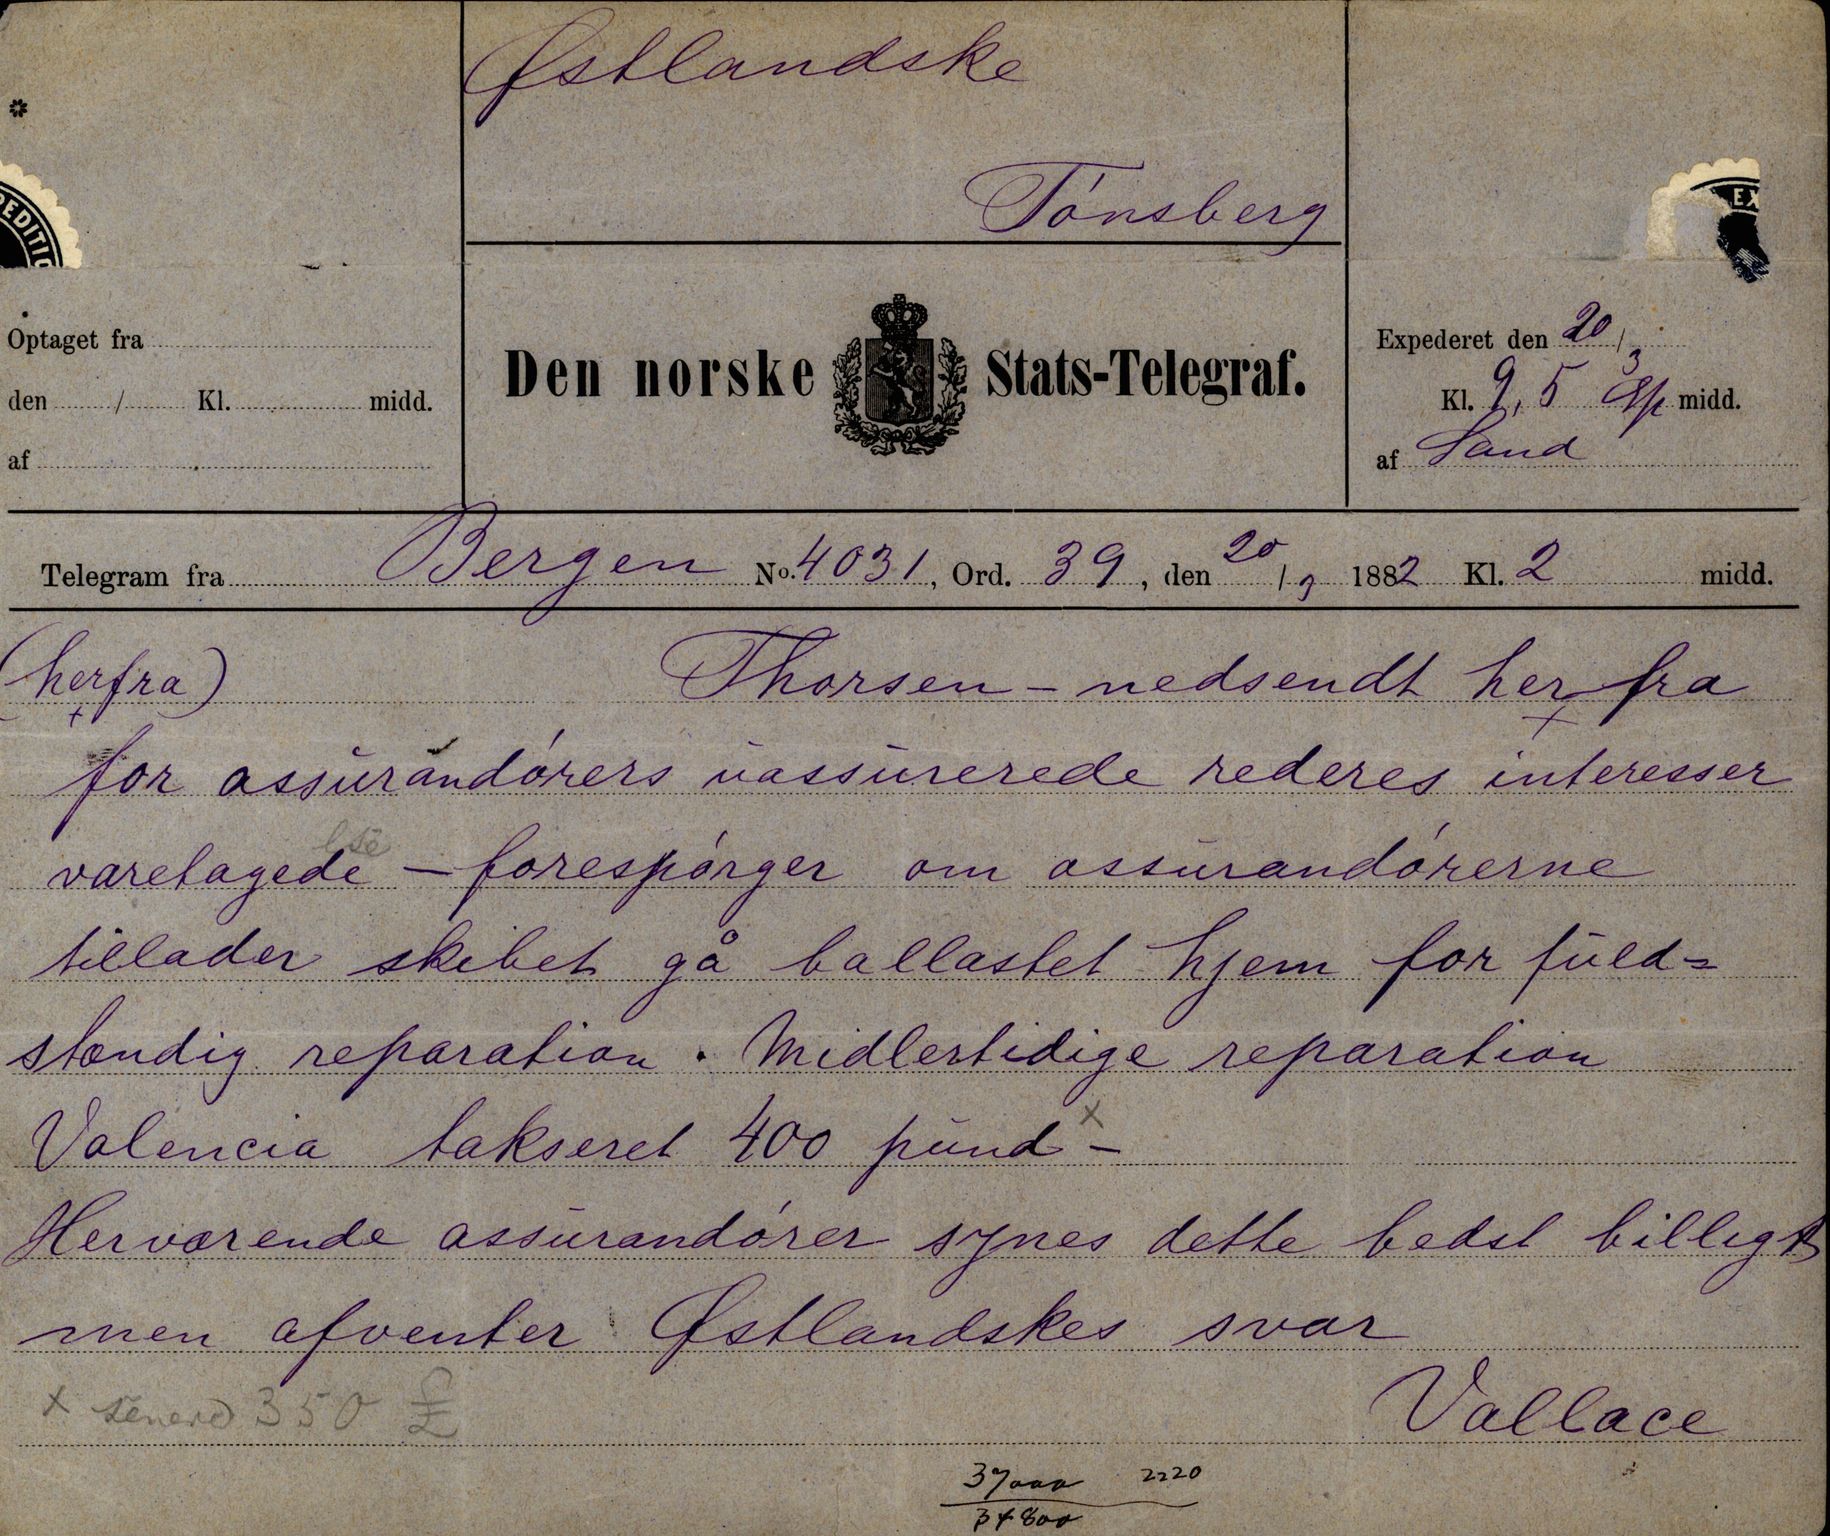 Østlandske
Tónsberg
PEDITIO
EX
Optaget fra
den / Kl. midd.
af
Den norske Stats-Telegraf.
Expederet den 20/3
Kl. 9,5 midd.
af Sand
Telegram fra Bergen No. 4031, Ord. 39, den 20/3 1882 Kl. 2 midd.
(herfra) Thorsen – nedsendt her fra
for assurandórers uassurerede rederes interesser
varetagede – forespórger om assurandórerne
tillader skibet gå ballastet hjem for fuld=
stændig reparation. Midlertidige reparation
Valencia takseret 400 pund x –
Herværende assurandórer synes dette bedst billigst
men afventer Østlandskes svar
x senere 350 £
Vallace
37000 2220
34800